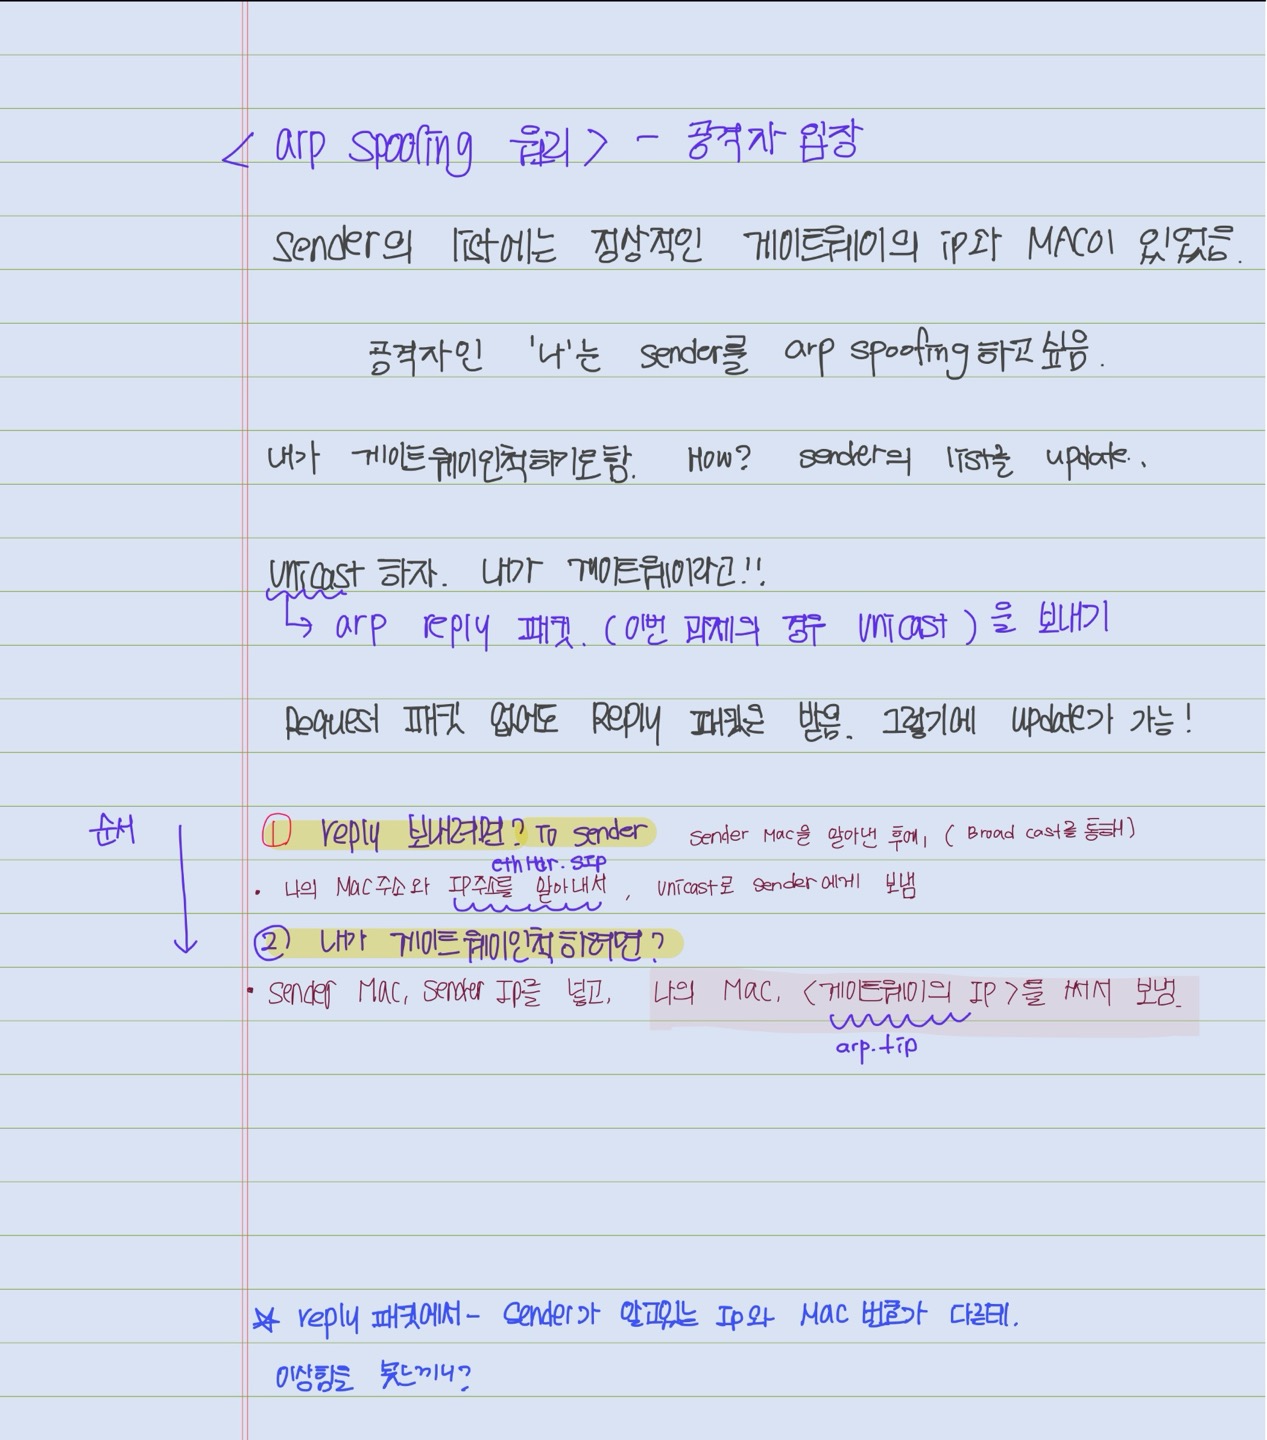 < arp spoofing 원리 > - 공격자 입장
sender의 list에는 정상적인 게이트웨이의 ip와 MAC이 있었음.
공격자인 '나'는 sender를 arp spoofing 하고싶음.
내가 게이트웨이인척하기로함. How? sender의 list를 update.
unicast 하자. 내가 게이트웨이라고!!
↳ arp reply 패킷. (이번 과제의 경우 unicast) 을 보내기
Request 패킷 없어도 Reply 패킷은 받음. 그렇기에 update가 가능!
순서
① reply 보내려면? To sender sender Mac을 알아낸 후에, (Broad cast를 통해)
ethHdr.sip
· 나의 Mac주소와 IP주소를 알아내서, unicast로 sender에게 보냄
② 내가 게이트웨이인척하려면?
· sender Mac, sender IP를 넣고, 나의 Mac, <게이트웨이의 IP>를 써서 보냄.
arp.tip
☆ reply 패킷에서 - sender가 알고있는 Ip와 Mac 번호가 다를테.
이상함을 못느끼니?